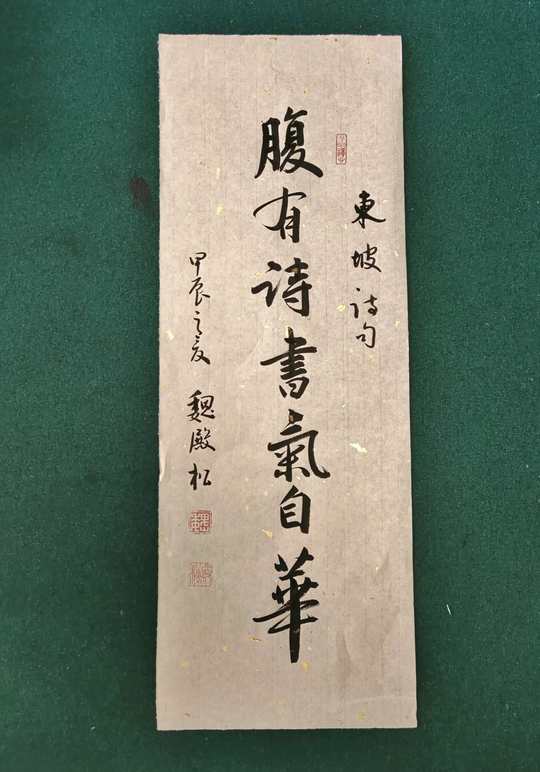 東坡詩句
腹有詩書氣自華
甲辰之夏
魏殿松